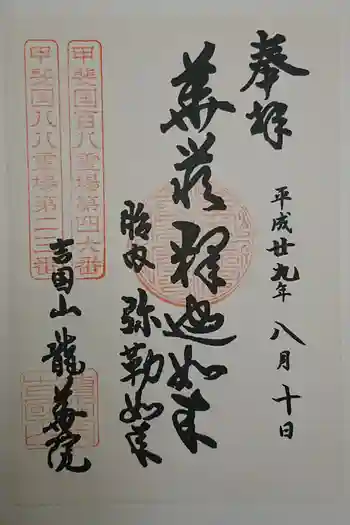 奉拝
平成廿九年 八月十日
華蔵釋迦如来
胎内 弥勒如来
甲斐国百八霊場第四六番
甲斐国八八霊場第二三番
吉国山 龍華院